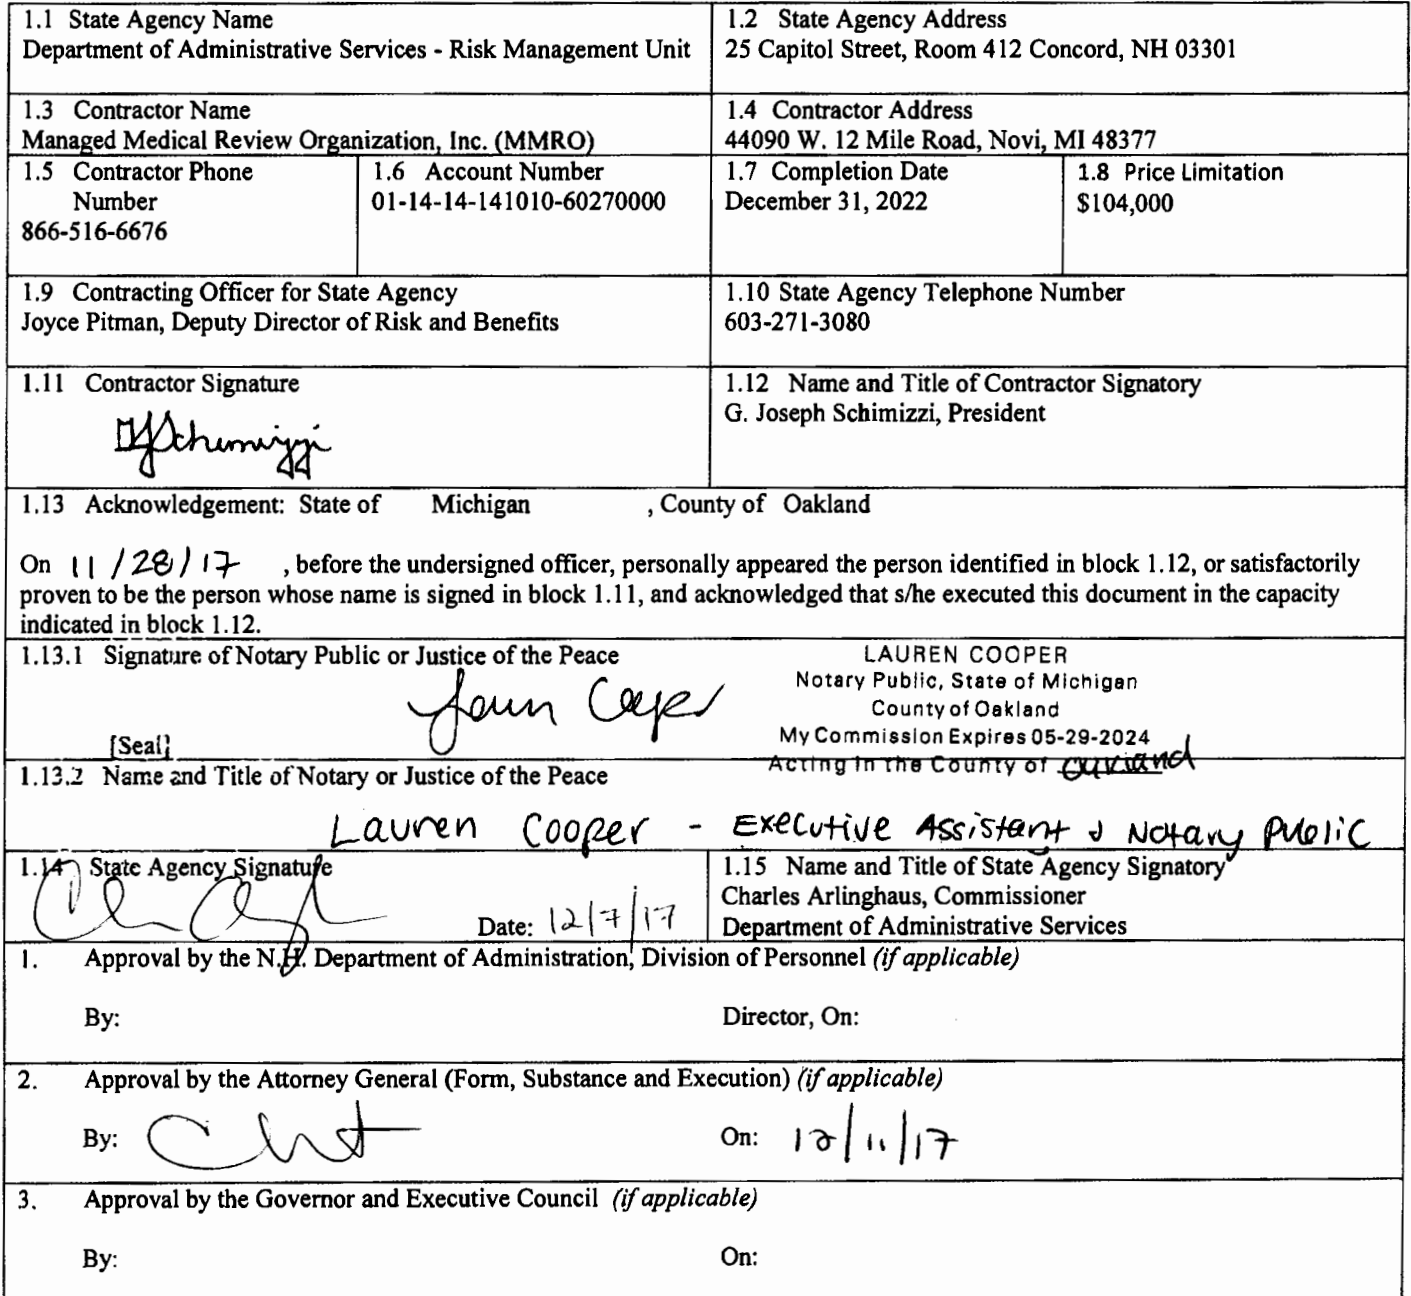 1.1 State Agency Name
Department of Administrative Services - Risk Management Unit
1.2 State Agency Address
25 Capitol Street, Room 412 Concord, NH 03301
1.3 Contractor Name
Managed Medical Review Organization, Inc. (MMRO)
1.4 Contractor Address
44090 W. 12 Mile Road, Novi, MI 48377
1.5 Contractor Phone
Number
866-516-6676
1.6 Account Number
01-14-14-141010-60270000
1.7 Completion Date
December 31, 2022
1.8 Price Limitation
$104,000
1.9 Contracting Officer for State Agency
Joyce Pitman, Deputy Director of Risk and Benefits
1.10 State Agency Telephone Number
603-271-3080
1.11 Contractor Signature
GJSchimizzi
1.12 Name and Title of Contractor Signatory
G. Joseph Schimizzi, President
1.13 Acknowledgement: State of Michigan , County of Oakland
On 11/28/17 , before the undersigned officer, personally appeared the person identified in block 1.12, or satisfactorily
proven to be the person whose name is signed in block 1.11, and acknowledged that s/he executed this document in the capacity
indicated in block 1.12.
1.13.1 Signature of Notary Public or Justice of the Peace
Lauren Cooper
[Seal]
LAUREN COOPER
Notary Public, State of Michigan
County of Oakland
My Commission Expires 05-29-2024
Acting in the County of Oakland
1.13.2 Name and Title of Notary or Justice of the Peace
Lauren Cooper - Executive Assistant & Notary Public
1.14 State Agency Signature
Date: 12/7/17
1.15 Name and Title of State Agency Signatory
Charles Arlinghaus, Commissioner
Department of Administrative Services
1. Approval by the N.H. Department of Administration, Division of Personnel (if applicable)
By: Director, On:
2. Approval by the Attorney General (Form, Substance and Execution) (if applicable)
By: On: 12/11/17
3. Approval by the Governor and Executive Council (if applicable)
By: On: